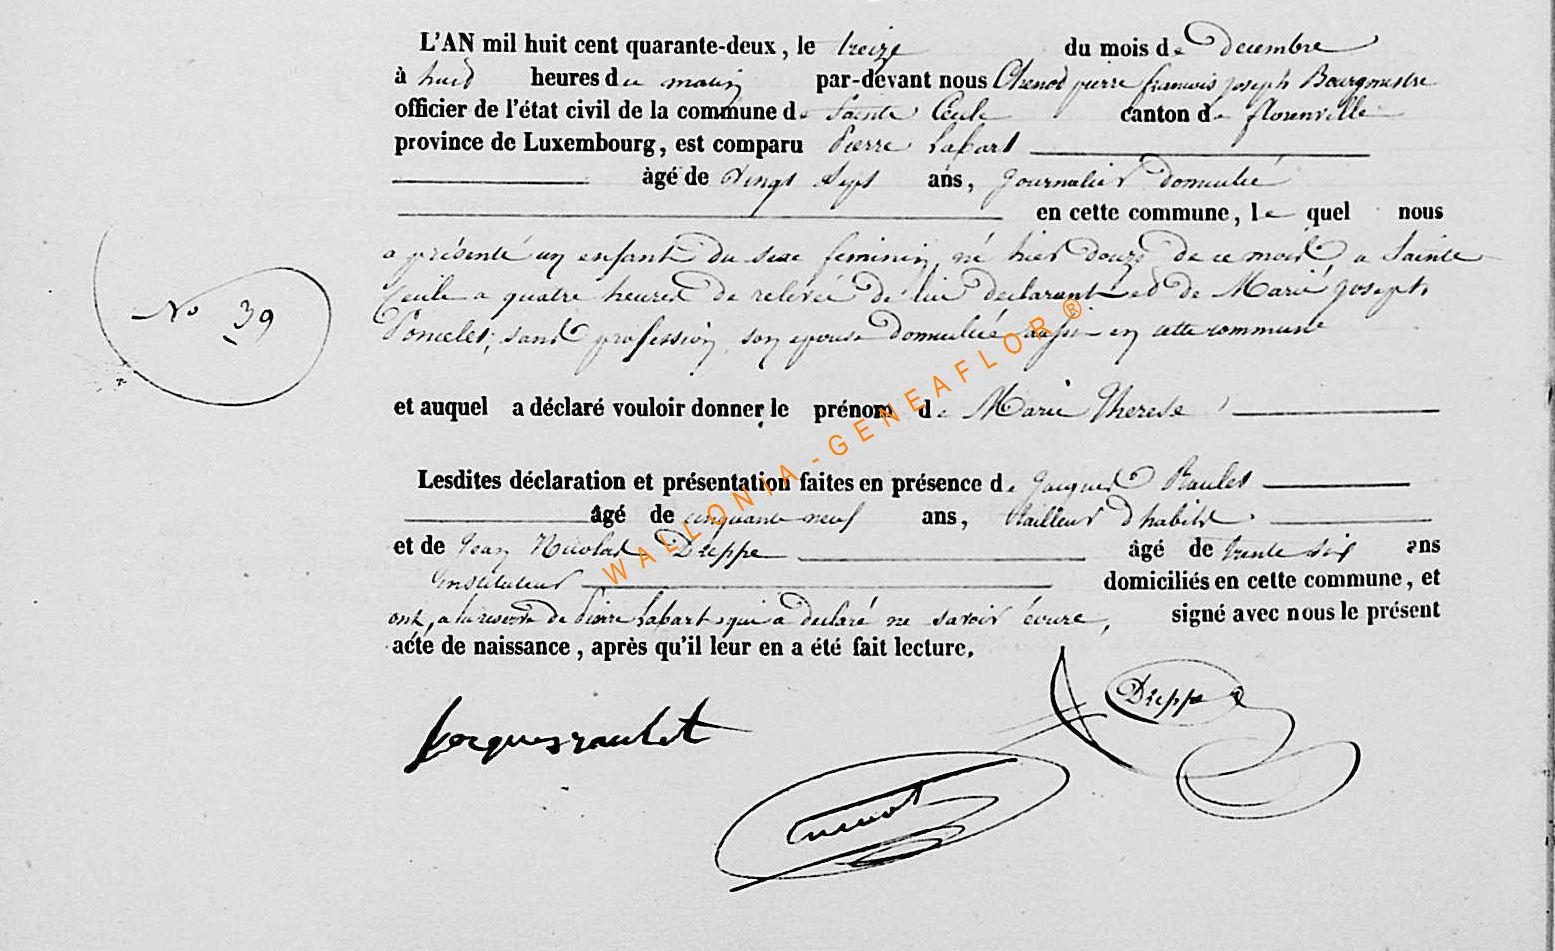 L'AN mil huit cent quarante-deux, le treize du mois de Decembre
à huit heures du matin par-devant nous Chenot pierre francois joseph Bourgmestre
officier de l'état civil de la commune de Sainte Cecile canton de florenville
province de Luxembourg, est comparu Pierre Labart
àgé de Vingt Sept ans, Journalier domicilié
en cette commune, le quel nous
a présenté un enfant du sexe feminin, né hier douze de ce mois, a Sainte
Cecile a quatre heures de relevée de lui declarant et de Marie joseph
Poncelet, sans profession, son epouse domiciliée aussi en cette commune
No 39
et auquel a déclaré vouloir donner le prénom de Marie Therese
Lesdites déclaration et présentation faites en présence de Jacques Raulet
âgé de cinquante neuf ans, tailleur d'habits
et de Jean Nicolas Dreppe âgé de trente six ans
Instituteur domiciliés en cette commune, et
ont, a la reserve de Pierre Labart qui a declaré ne savoir écrire, signé avec nous le présent
acte de naissance, après qu'il leur en a été fait lecture.
Dreppe
Jacques raulet
Chenot
WALLONIA-GENEAFLOR ®